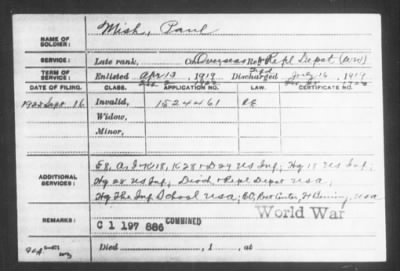 NAME OF SOLDIER: Mish, Paul
SERVICE: Late rank, Co. Overseas Repl Depot (WW)
TERM OF SERVICE: Enlisted Apr 13, 1919 Discharged July 16, 1919
DATE OF FILING. CLASS. APPLICATION NO. LAW. CERTIFICATE NO.
1928 Sept. 16 Invalid, 1524461
Widow,
Minor,
ADDITIONAL SERVICES: K 28 + D 29 US Inf; Hq 15 US Inf;
Hq 28 US Inf; Disch + Repl Depot USA,
Hq The Inf School USA; Ft Benning, USA
REMARKS: C 1 197 886 COMBINED World War
Died , 1 , at